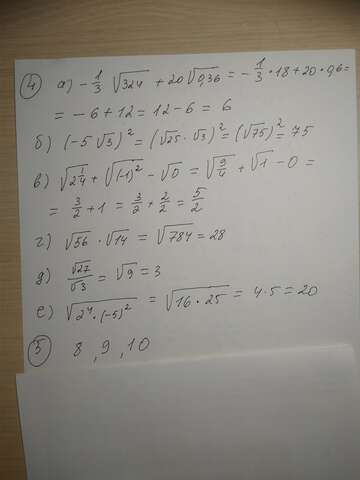 ④ а) -1/3 √324 + 20√0,36 = -1/3 · 18 + 20 · 0,6 =
= -6 + 12 = 12 - 6 = 6
б) (-5√3)² = (√25 · √3)² = (√75)² = 75
в) √2 1/4 + √(-1)² - √0 = √9/4 + √1 - 0 =
= 3/2 + 1 = 3/2 + 2/2 = 5/2
г) √56 · √14 = √784 = 28
д) √27/√3 = √9 = 3
е) √2⁴ · (-5)² = √16 · 25 = 4 · 5 = 20
⑤ 8, 9, 10